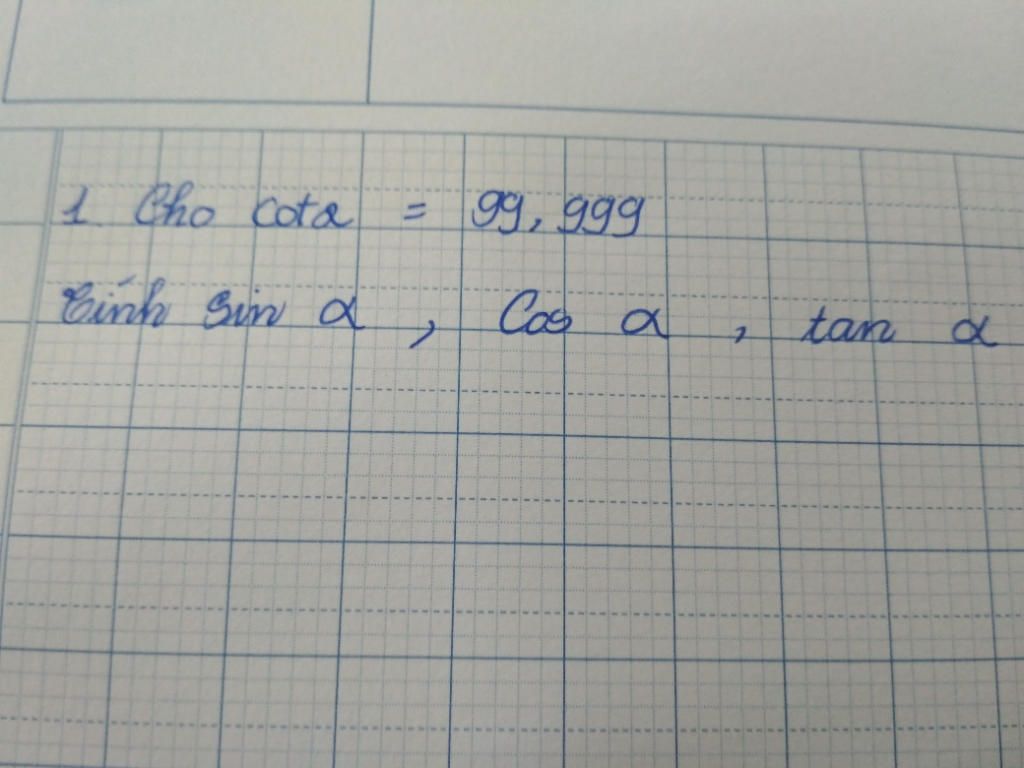 1. Cho cotα = 99,999
Tính sin α, Cos α, tan α